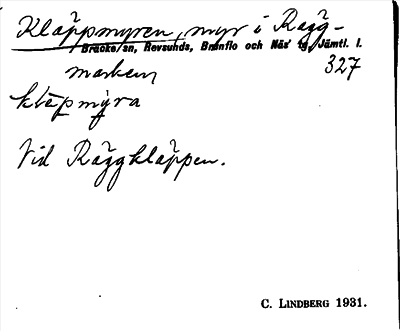 Kläppmyren, myr i Rägg-
Bräcke/sn, Revsunds, Brunflo och Näs' tg, Jämtl. l.
marken, 327
klèpmýra
Vid Räggkläppen.
C. LINDBERG 1931.